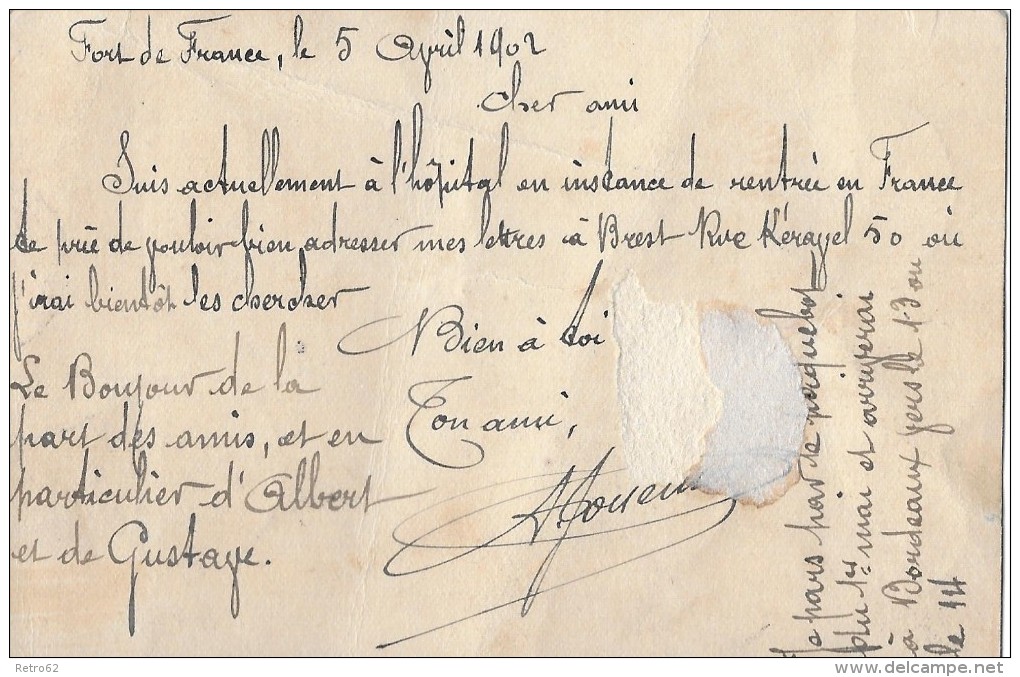 Fort de France, le 5 April 1902
Cher ami
Suis actuellement à l'hôpital en instance de rentrée en France
te prie de vouloir bien adresser mes lettres à Brest Rue Kéravel 50 où
j'irai bientôt les chercher
Bien à toi
Ton ami,
Le Bonjour de la
part des amis, et en
particulier d'Albert
et de Gustave.
Je pars par le paquebot
du 1er mai et arriverai
à Bordeaux vers le 13 ou
le 14
Retro62
delcampe.net